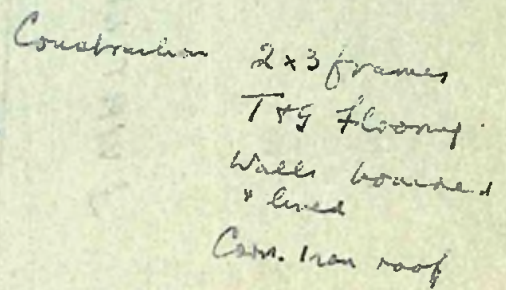 Construction 2x3 frames
T & G Flooring
Walls boarded
& lined
Corr. Iron roof